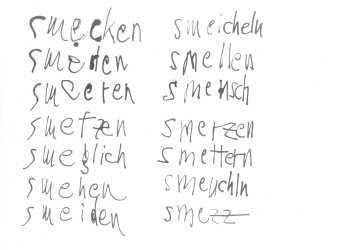 smecken smeicheln
smeden smellen
smeeren smensch
smetzen smerzen
smeglich smettern
smehen smeuchln
smeiden smezz